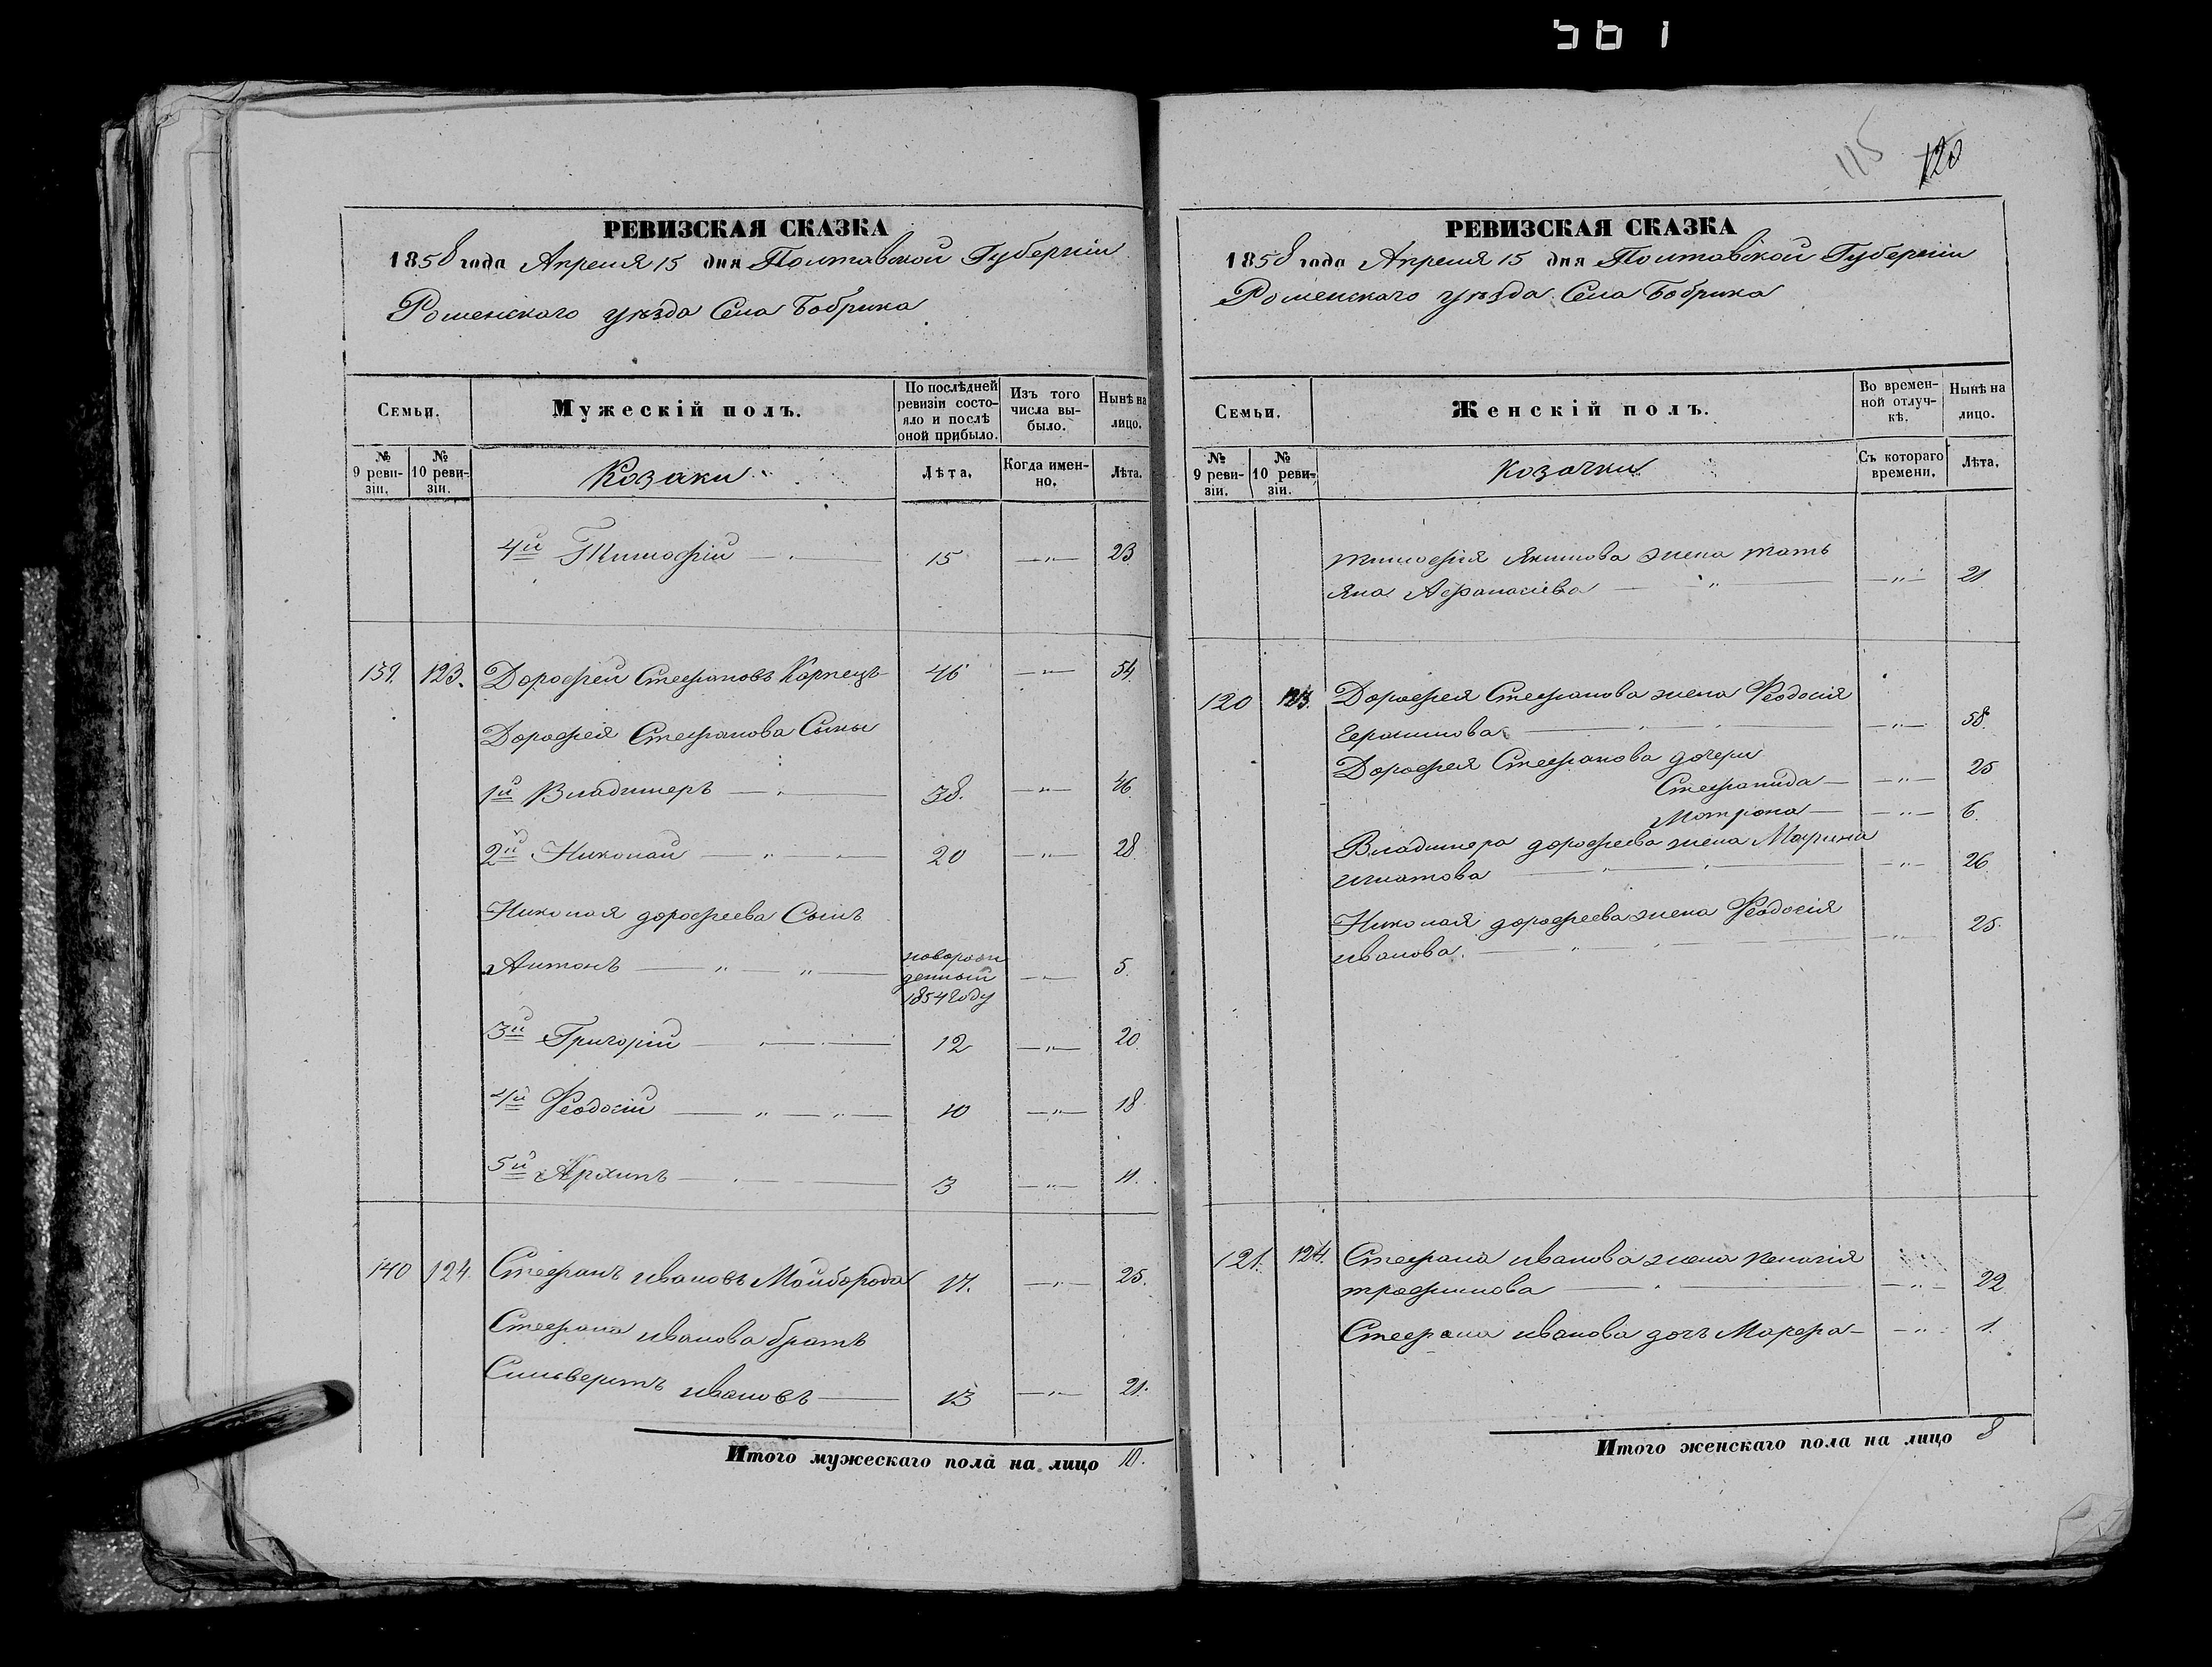 561
115
120
РЕВИЗСКАЯ СКАЗКА
1858 года Апреля 15 дня Полтавской Губерніи
Роменскаго уѣзда Села Бобрика
Семьи.
Мужескій полъ.
По послѣдней ревизіи состояло и послѣ оной прибыло.
Изъ того числа выбыло.
Нынѣ на лицо.
№ 9 ревизіи.
№ 10 ревизіи.
Козаки
Лѣта.
Когда именно.
Лѣта.
4й Тимофій — 15 — „ — 23
139. 123. Дорофей Стефановъ Карпецъ 46 — „ — 54
Дорофея Стефанова Сыны
1й Владимеръ — 38. — „ — 46
2й Николай — „ — 20 — „ — 28
Николая дорофеева Сынъ
Антонъ — „ — „ — новорожденный 1854 году — „ — 5.
3й Григорій — 12 — „ — 20
4й Феодосій — „ — „ — 10 — „ — 18
5й Архипъ — 3 — „ — 11.
140 124. Стефанъ ивановъ Майборода 17. — „ — 25.
Стефана иванова братъ
Сильверстъ ивановъ — 13 — „ — 21.
Итого мужескаго пола на лицо 10.
РЕВИЗСКАЯ СКАЗКА
1858 года Апреля 15 дня Полтавской Губерніи
Роменскаго уѣзда Села Бобрика
Семьи.
Женскій полъ.
Во временной отлучкѣ.
Нынѣ на лицо.
№ 9 ревизіи.
№ 10 ревизіи.
Козачки
Съ котораго времени.
Лѣта.
тимофія Якимова жена тать
яна Афанасіева — „ — — „ — 21
120 123. Дорофея Стефанова жена Феодосія
Герасимова — „ — 58.
Дорофея Стефанова дочери
Стефанида — — „ — 25
Матрона — — „ — 6.
Владимера дорофеева жена Марина
игнатова — „ — — „ — 26
Николая дорофеева жена Феодосія
иванова. — „ — — „ — 25.
121. 124. Стефана иванова жена
трофимова — „ — — „ — 22
Стефана иванова дочь Марфа — — „ — 1.
Итого женскаго пола на лицо 8